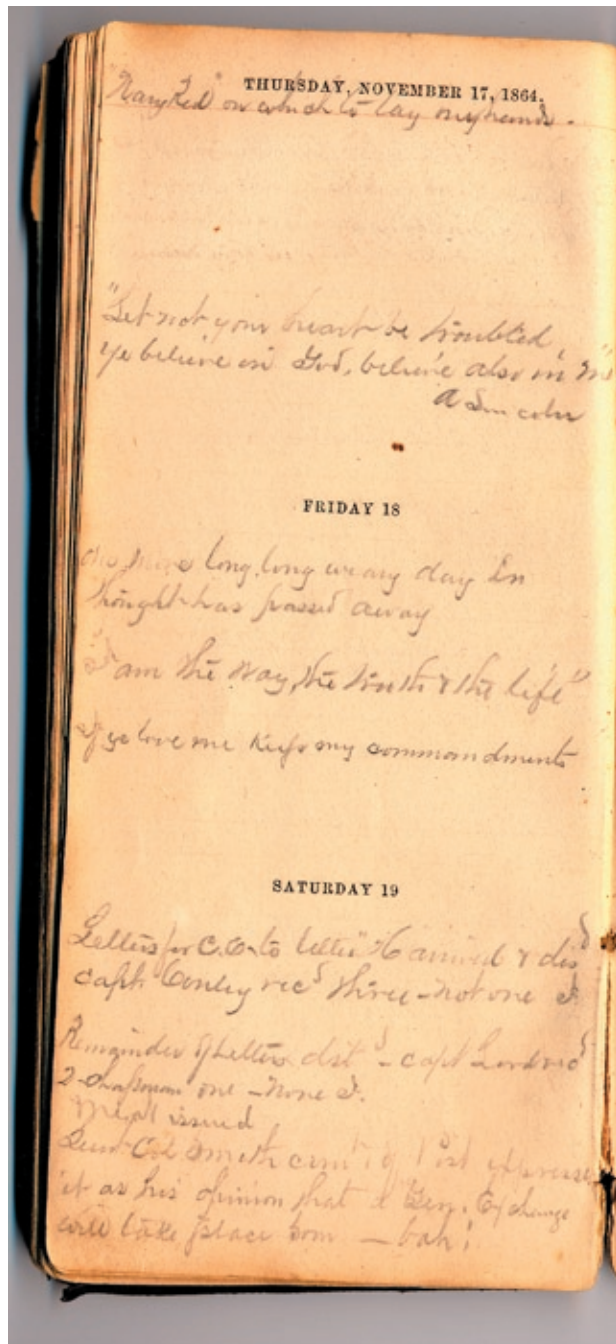 THURSDAY, NOVEMBER 17, 1864.
on which to lay my hands.
"Let not your heart be troubled,
ye believe in God, believe also in me"
A Lincoln
FRIDAY 18
One more long, long weary day In
thought has passed away
"I am the way, the truth & the life"
If ye love me keep my commandments
SATURDAY 19
Letters for C.O. to letter "H arrived & disd
capt. Conley recd three - not one I.
Remainder of Letters distd - capt Lord recd
2 - Chapman one - None I.
Meat issued
Lieut Col Smith comt of Post expresses
it as his opinion that a Gen. Exchange
will take place soon - bah!